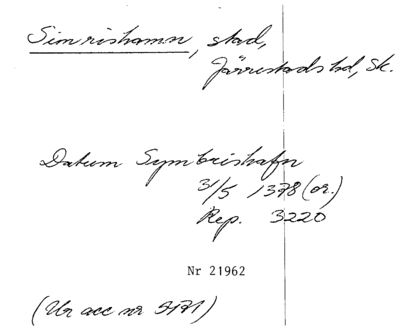 Simrishamn, stad,
Järrestads hd, Sk.
Datum Symbrishafn
31/5 1378 (or.)
Rep. 3220
Nr 21962
(Ur acc nr 5171)